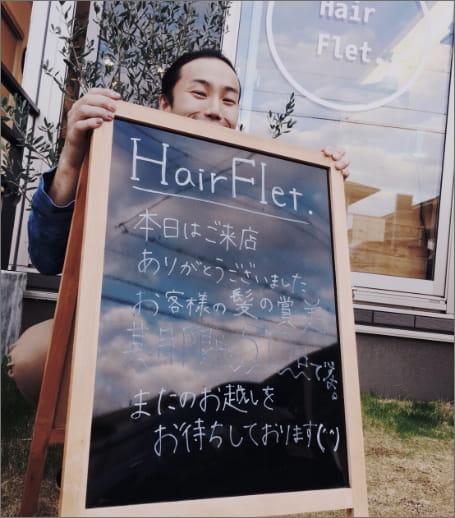 Hair
Flet.
HairFlet.
本日はご来店
ありがとうございました
お客様の髪の賞美
期限
で栄
またのお越しを
お待ちしております(^^)